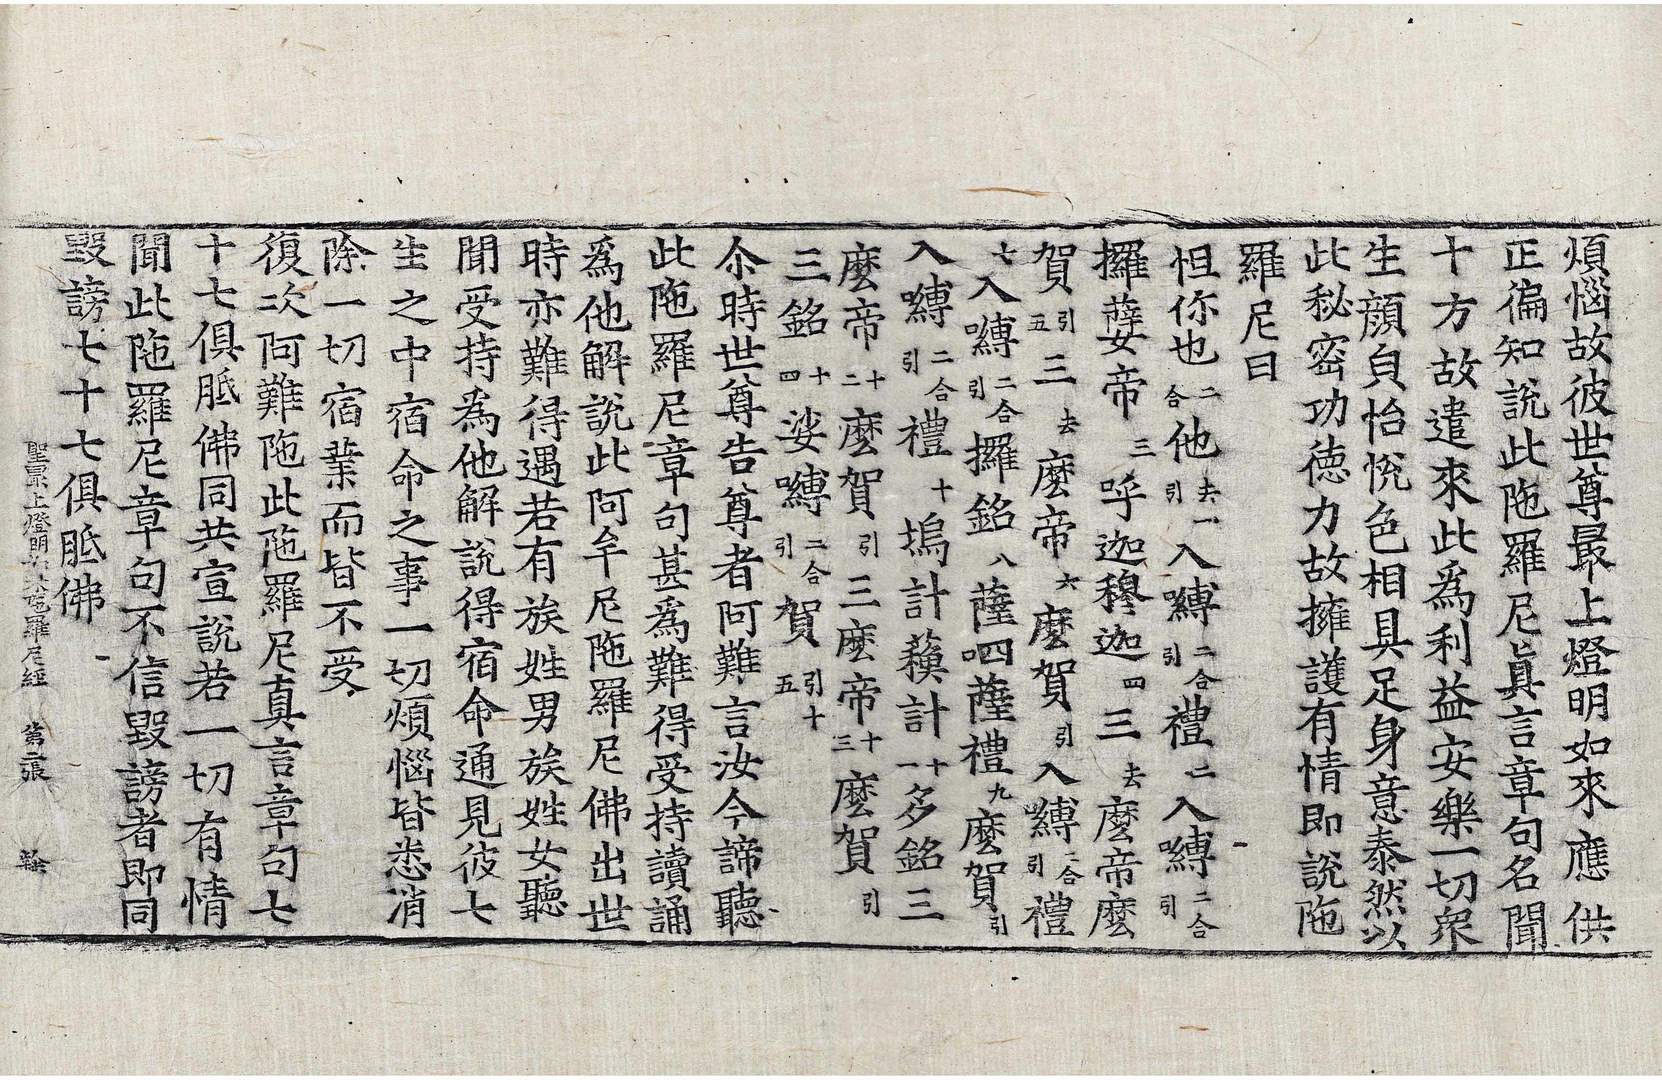 煩惱故彼世尊最上燈明如來應供
正徧知說此陁羅尼眞言章句名聞
十方故遣來此爲利益安樂一切衆
生顔皃怡悅色相具足身意泰然以
此秘密功德力故擁護有情即說陁
羅尼曰
怛你也二合他去引一入嚩二合引禮二入嚩二合引
攞薩帝三呼迦穆迦四三去麼帝麼
賀引五三去麼帝六麼賀引入嚩二合引禮
七入嚩二合引攞銘八薩呬薩禮九麼賀引
入嚩二合引禮十塢計蘱計十一多銘三
麼帝十二麼賀引三麼帝十三麼賀引
三銘十四娑嚩二合引賀引十五
尒時世尊告尊者阿難言汝今諦聽
此陁羅尼章句甚爲難得受持讀誦
爲他解說此阿牟尼陁羅尼佛出世
時亦難得遇若有族姓男族姓女聽
聞受持為他解說得宿命通見彼七
生之中宿命之事一切煩惱皆悉消
除一切宿業而皆不受
復次阿難陁此陁羅尼真言章句七
十七俱胝佛同共宣說若一切有情
聞此陁羅尼章句不信毀謗者即同
毀謗七十七俱胝佛
聖最上燈明如來陁羅尼經 第二張